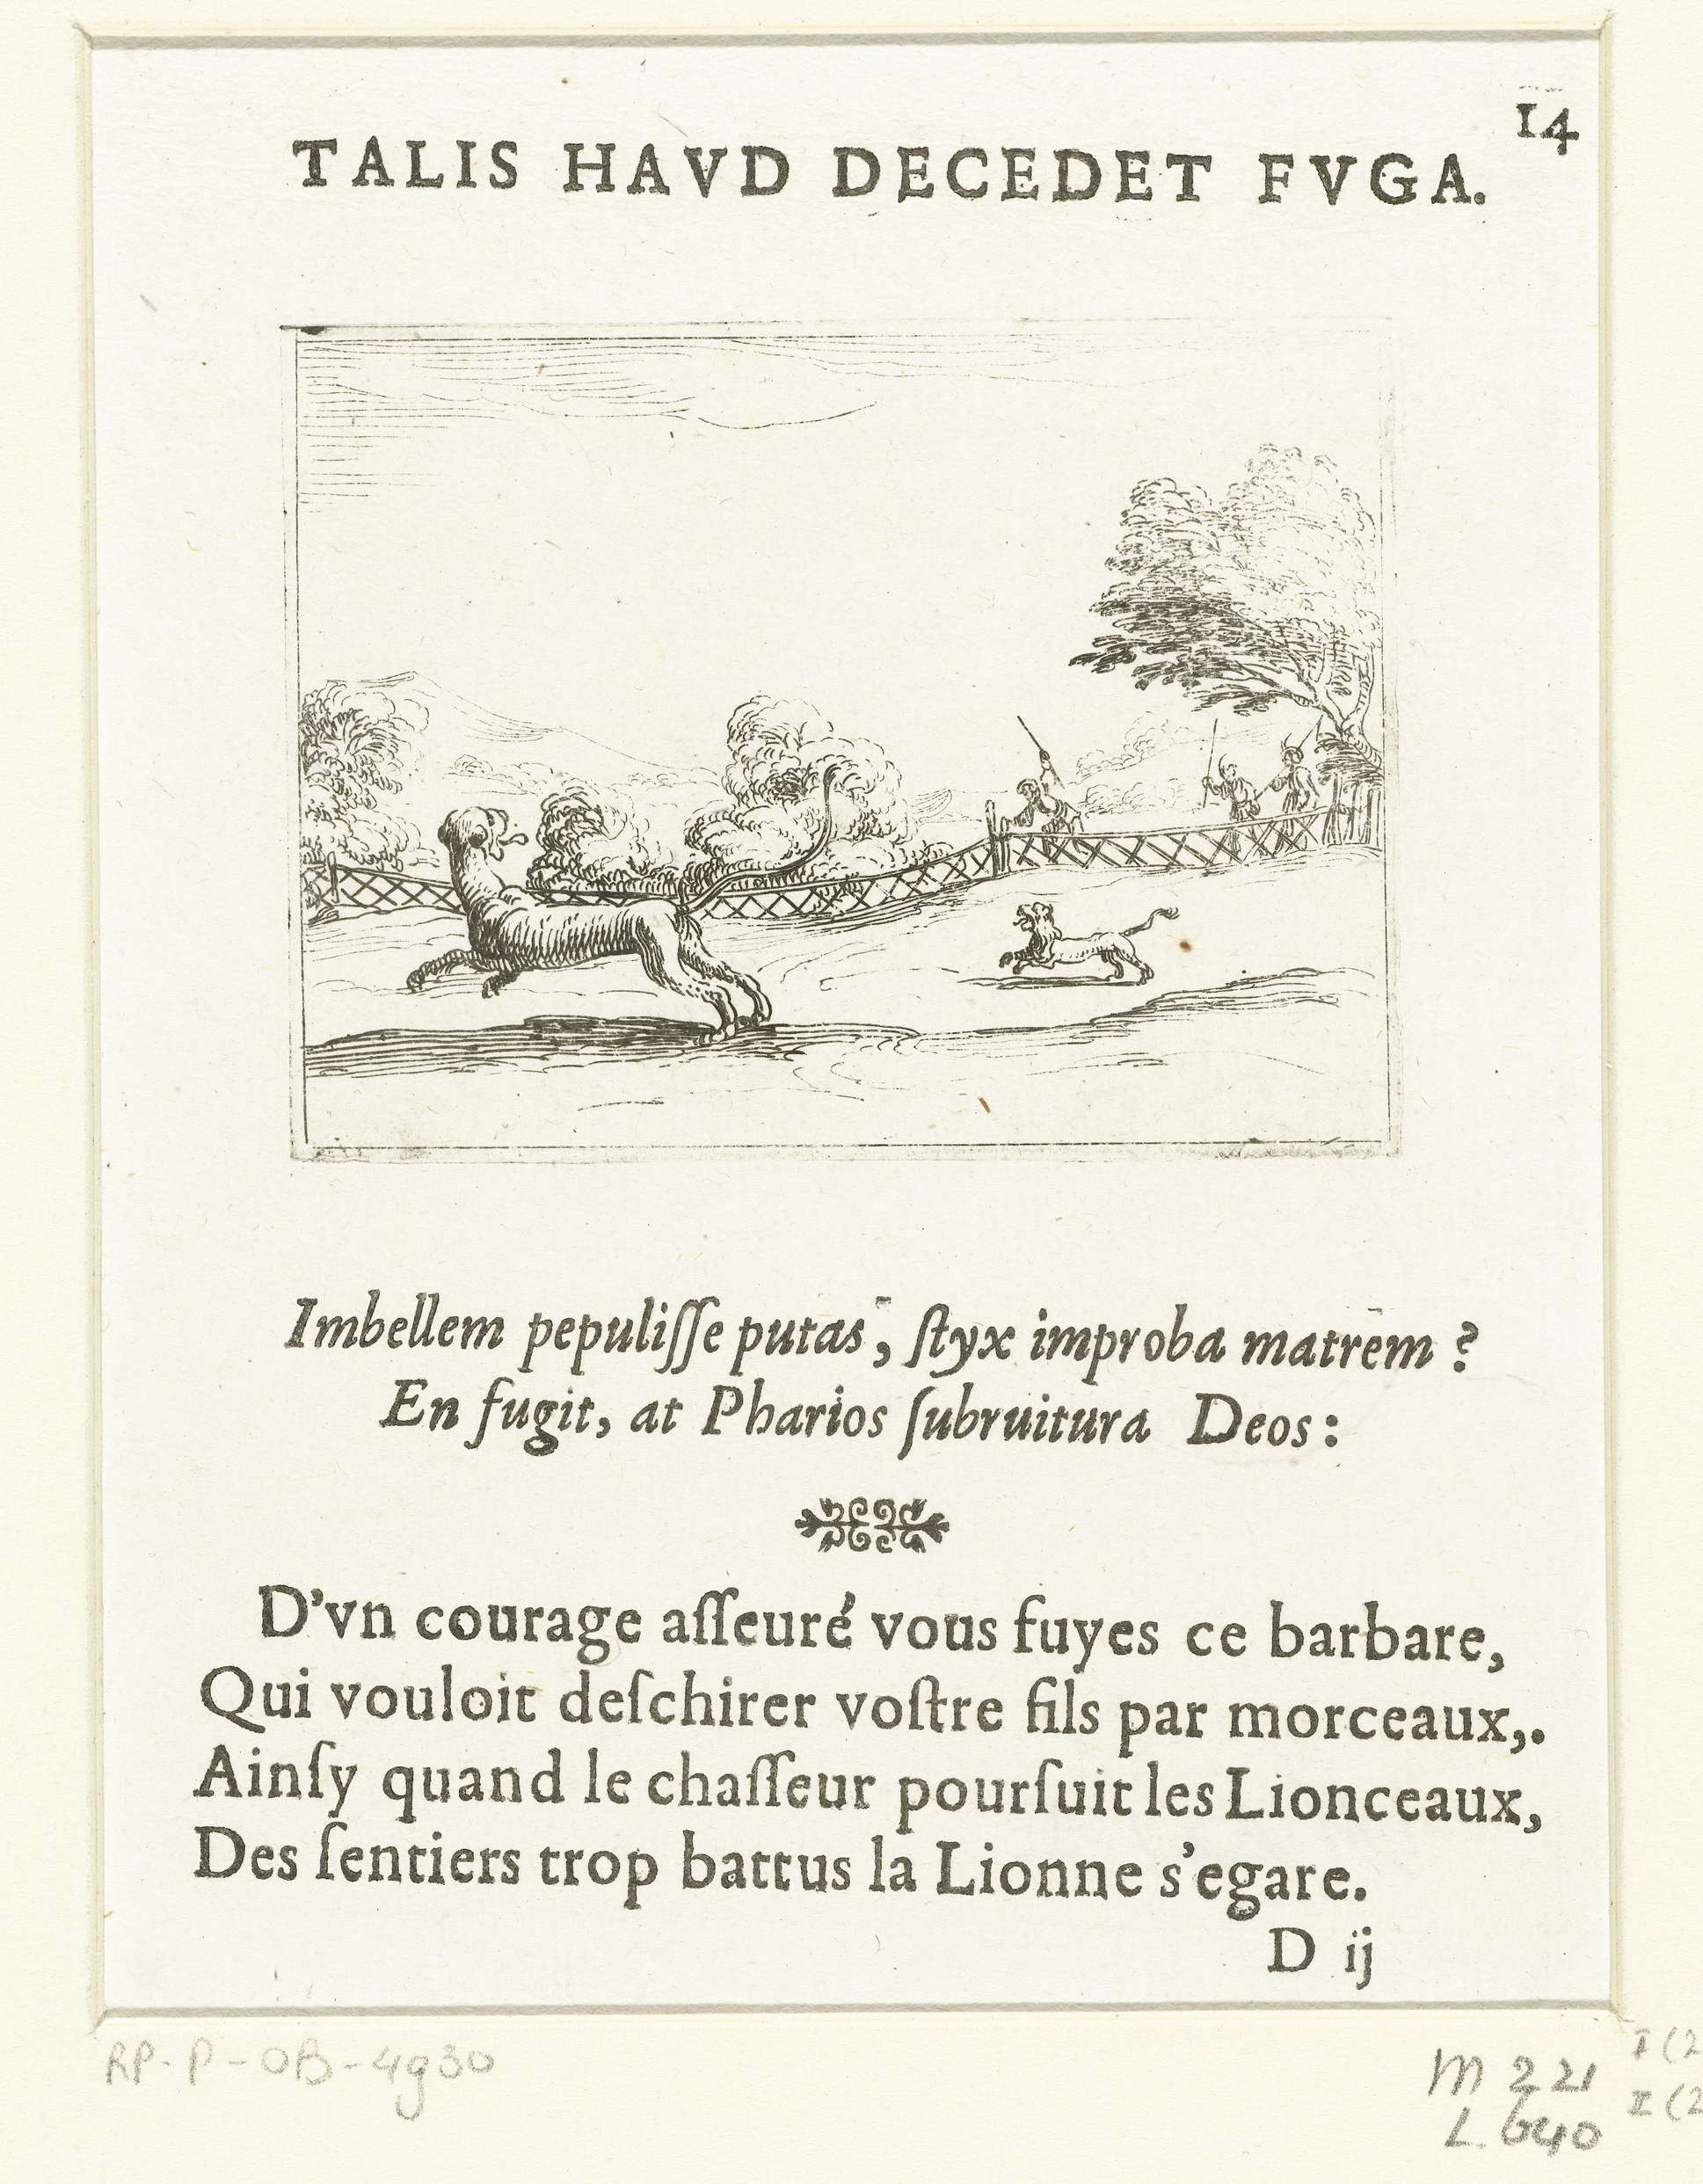 14
TALIS HAVD DECEDET FVGA.
Imbellem pepuliſſe putas, ſtyx improba matrem ?
En fugit, at Pharios ſubruitura Deos :
D'vn courage aſſeuré vous fuyes ce barbare,
Qui vouloit deſchirer voſtre fils par morceaux,.
Ainſy quand le chaſſeur pourſuit les Lionceaux,
Des ſentiers trop battus la Lionne s'egare.
D ij
RP-P-OB-4930
M 221
L. 640
I (2
II (2